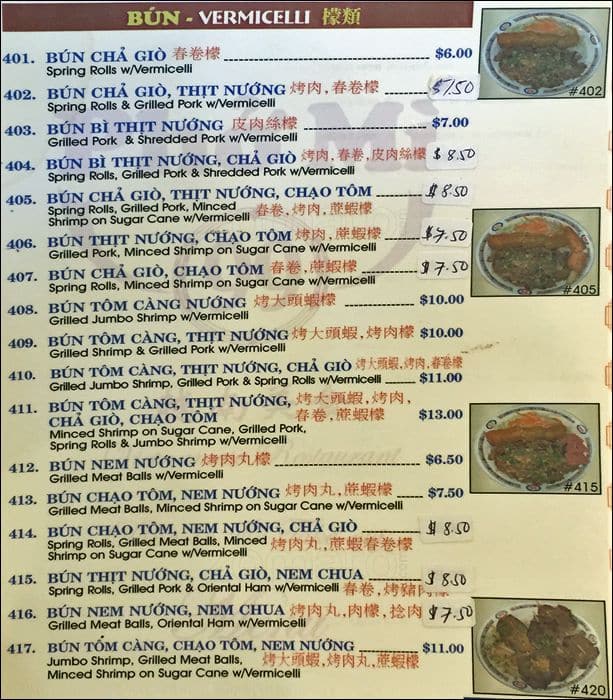 BÚN - VERMICELLI 檬類
401. BÚN CHẢ GIÒ 春卷檬 $6.00
Spring Rolls w/Vermicelli
402. BÚN CHẢ GIÒ, THỊT NƯỚNG 烤肉,春卷檬 $7.50
Spring Rolls & Grilled Pork w/Vermicelli
403. BÚN BÌ THỊT NƯỚNG 皮肉絲檬 $7.00
Grilled Pork & Shredded Pork w/Vermicelli
404. BÚN BÌ THỊT NƯỚNG, CHẢ GIÒ 烤肉,春卷,皮肉絲檬 $8.50
Spring Rolls, Grilled Pork & Shredded Pork w/Vermicelli
405. BÚN CHẢ GIÒ, THỊT NƯỚNG, CHẠO TÔM $8.50
Spring Rolls, Grilled Pork, Minced 春卷,烤肉,蔗蝦檬
Shrimp on Sugar Cane w/Vermicelli
406. BÚN THỊT NƯỚNG, CHẠO TÔM 烤肉,蔗蝦檬 $7.50
Grilled Pork, Minced Shrimp on Sugar Cane w/Vermicelli
407. BÚN CHẢ GIÒ, CHẠO TÔM 春卷,蔗蝦檬 $7.50
Spring Rolls, Minced Shrimp on Sugar Cane w/Vermicelli
408. BÚN TÔM CÀNG NƯỚNG 烤大頭蝦檬 $10.00
Grilled Jumbo Shrimp w/Vermicelli
409. BÚN TÔM CÀNG, THỊT NƯỚNG 烤大頭蝦,烤肉檬 $10.00
Grilled Shrimp & Grilled Pork w/Vermicelli
410. BÚN TÔM CÀNG, THỊT NƯỚNG, CHẢ GIÒ 烤大頭蝦,烤肉,春卷檬
Grilled Jumbo Shrimp, Grilled Pork & Spring Rolls w/Vermicelli $11.00
411. BÚN TÔM CÀNG, THỊT NƯỚNG, 烤大頭蝦,烤肉,
CHẢ GIÒ, CHẠO TÔM 春卷,蔗蝦檬 $13.00
Minced Shrimp on Sugar Cane, Grilled Pork,
Spring Rolls & Jumbo Shrimp w/Vermicelli
412. BÚN NEM NƯỚNG 烤肉丸檬 $6.50
Grilled Meat Balls w/Vermicelli
413. BÚN CHẠO TÔM, NEM NƯỚNG 烤肉丸,蔗蝦檬 $7.50
Grilled Meat Balls, Minced Shrimp on Sugar Cane w/Vermicelli
414. BÚN CHẠO TÔM, NEM NƯỚNG, CHẢ GIÒ $8.50
Spring Rolls, Grilled Meat Balls, Minced 烤肉丸,蔗蝦春卷檬
Shrimp on Sugar Cane w/Vermicelli
415. BÚN THỊT NƯỚNG, CHẢ GIÒ, NEM CHUA $8.50
Spring Rolls, Grilled Pork & Oriental Ham w/Vermicelli 春卷,烤豬肉檬
416. BÚN NEM NƯỚNG, NEM CHUA 烤肉丸,肉檬,捻肉 $7.50
Grilled Meat Balls, Oriental Ham w/Vermicelli
417. BÚN TÔM CÀNG, CHẠO TÔM, NEM NƯỚNG $11.00
Jumbo Shrimp, Grilled Meat Balls, 烤大頭蝦,烤肉丸,蔗蝦檬
Minced Shrimp on Sugar Cane w/Vermicelli
#402
#405
#415
#420